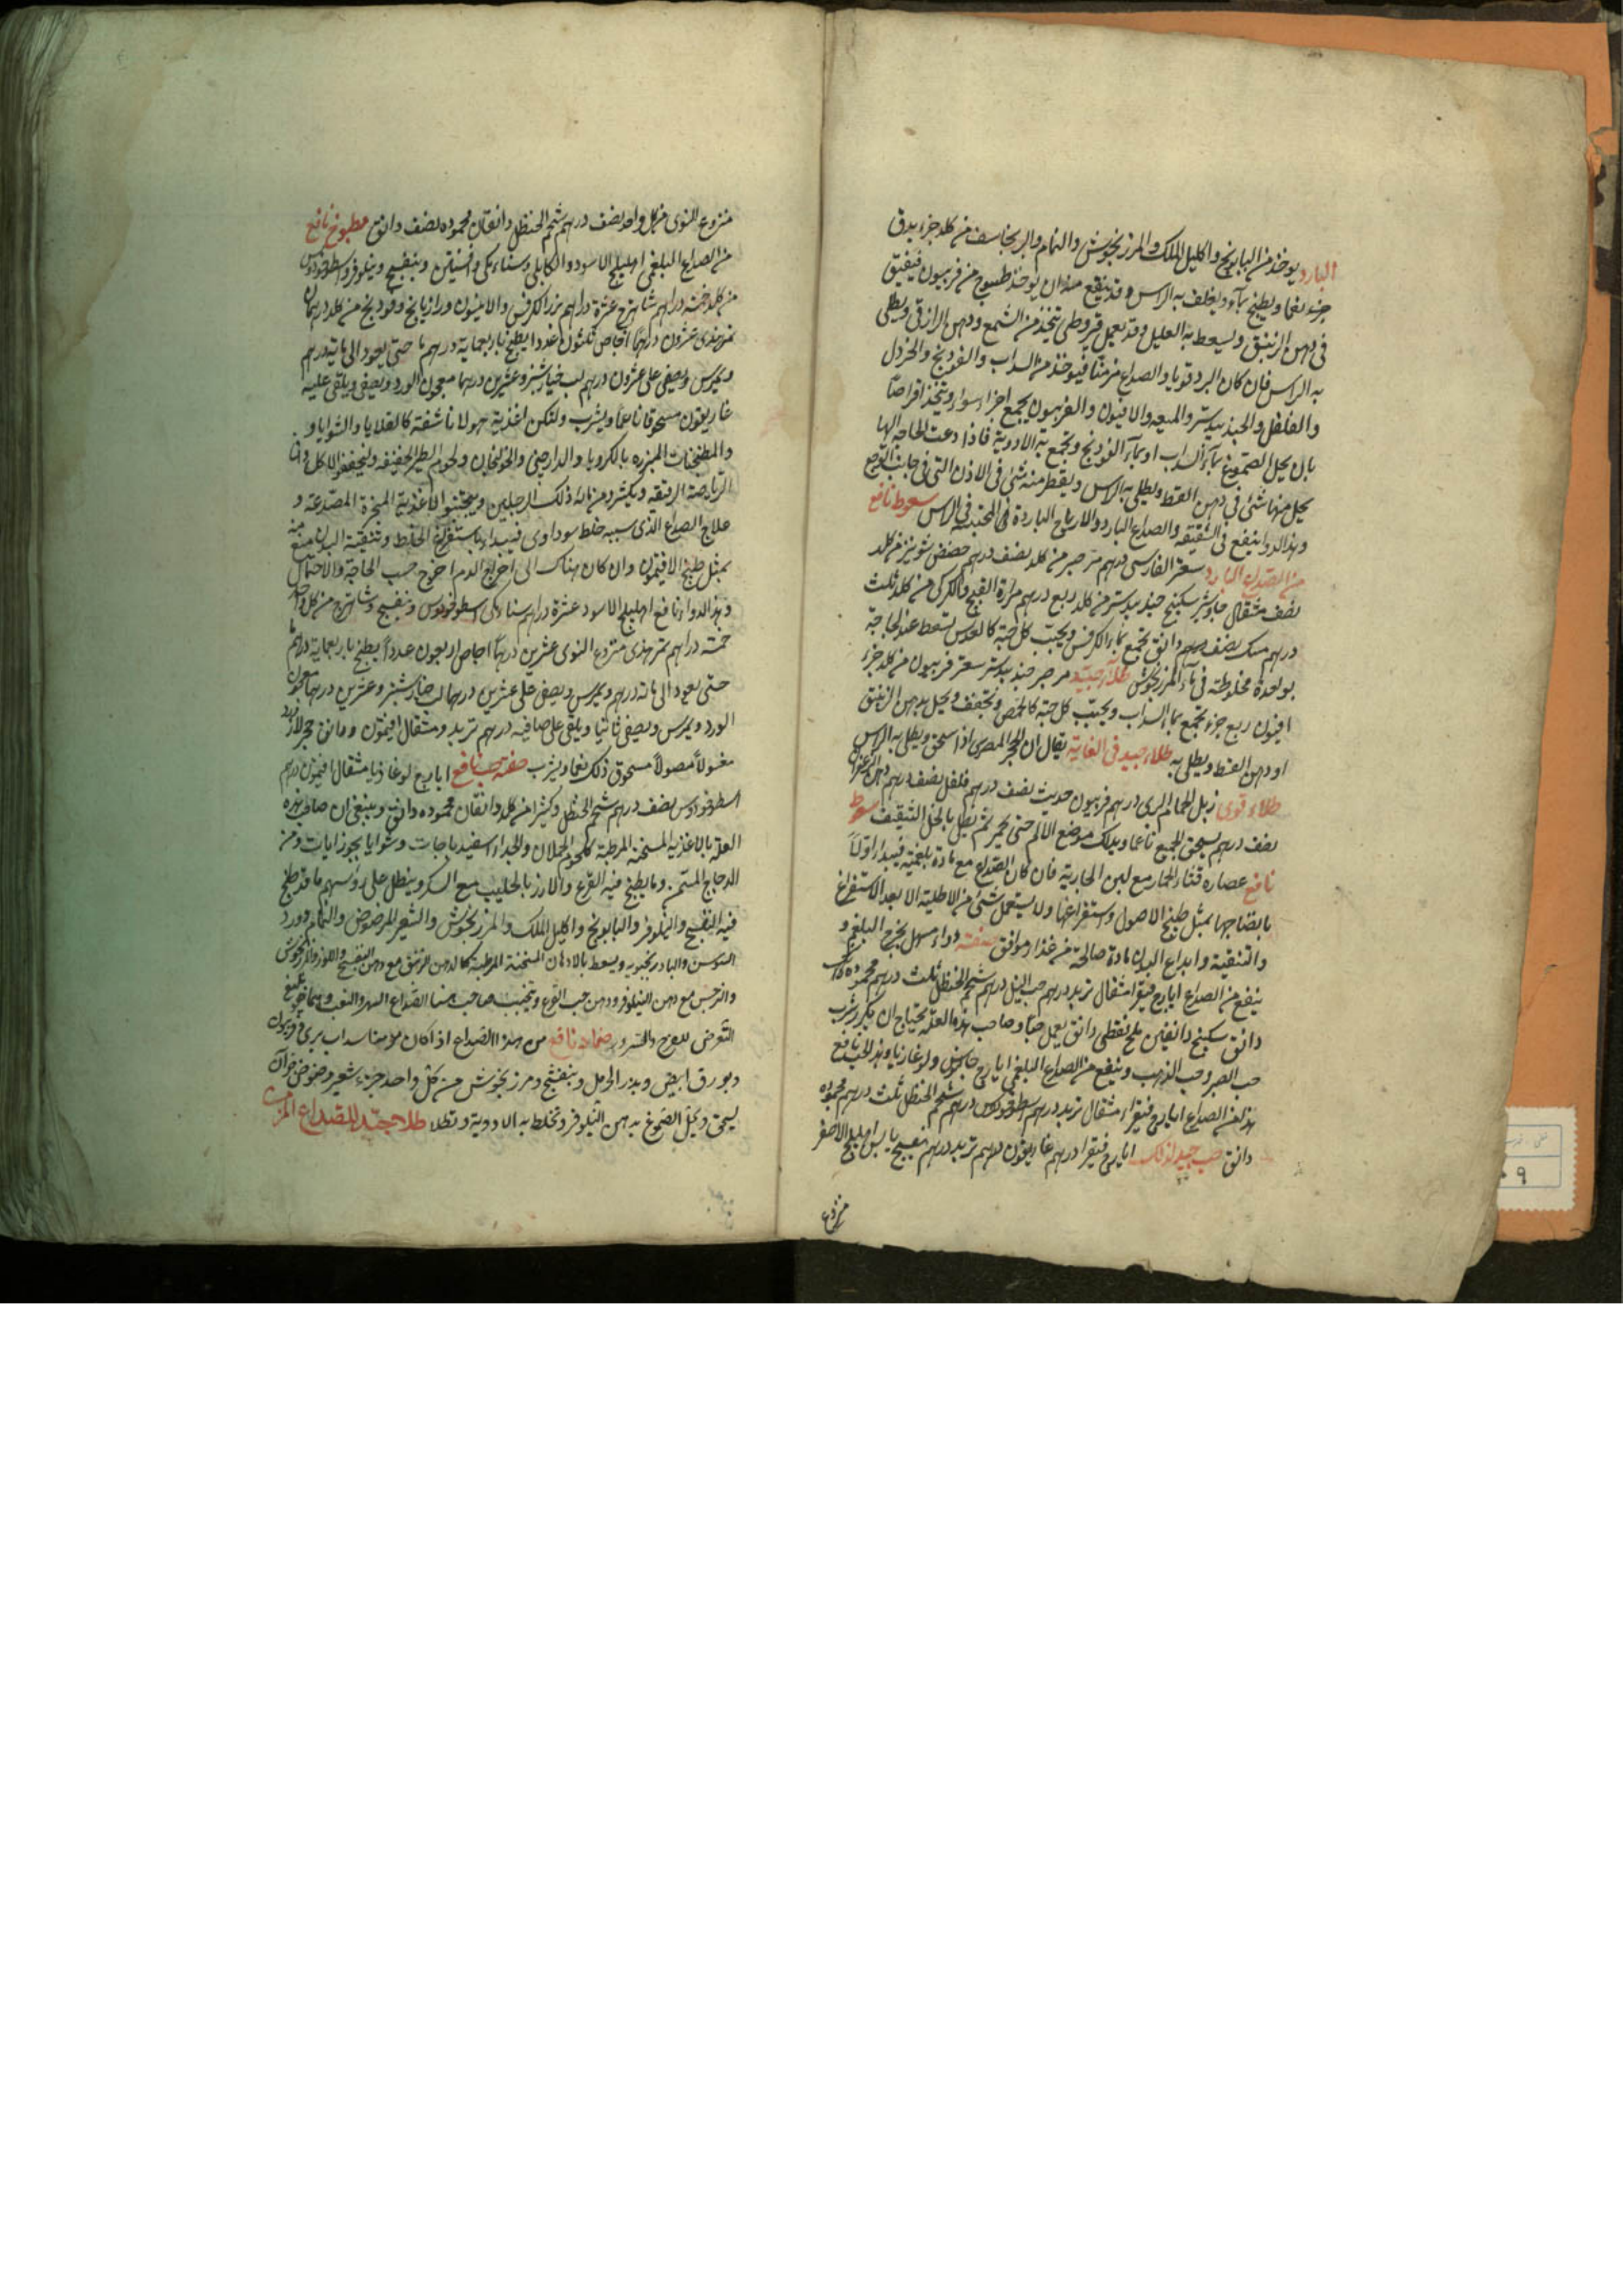 البارد يوخذ من البابونج واكليل الملك والمرزنجوش والنمام والبرنجاسف من كلد جزء يدق
جزء نعما ويطبخ بماء ويغلف به الراس وقد ينفع منه ان يوخذ طسوج من فربيون فيفتق
في دهن الزنبق ويسعط به العليل وقد يعمل قيروطي يتخذ من الشمع ودهن الرازقي ويطلى
به الراس فان كان البرد قويا والصداع مزمنا فيوخذ من السداب والفودنج والخردل
والفلفل والجندبيدستر والميعه والافيون والفربيون يجمع اجزاء سواء ويتخذ اقراصا
بان يحل الصموغ بماء السداب او بماء الفودنج ويجمع به الادوية فاذا دعت الحاجه اليها
يحل منها شئ في دهن القسط ويطلى به الراس ويقطر منه شئ في الاذن التي في جانب الوجع
وهذا الدواء ينفع في الشقيقه والصداع البارد والارياح الباردة المحتبسه في الراس سعوط نافع
من الصداع البارد سعتر الفارسي درهم مر صبر من كلد نصف درهم حضض شونيز من كلد
نصف مثقال جاوشير سكبينج جندبيدستر من كلد ربع درهم مرارة القبج والكركي من كلد ثلث
درهم مسك نصف درهم دانق تجمع بماء الكرفس ويحبب كل حبة كالعدس يسعط عند الحاجة
بواحدة مخلوطة في ماء المرزنجوش طلاء جيد مر صبر جندبيدستر سعتر فربيون من كلد جزء
افيون ربع جزء تجمع بماء السداب ويحبب كل حبة كالحمص وتجفف ويحل بدهن الزنبق
او دهن القسط ويطلى به طلاء جيد في الغاية يقال ان الحجر المصري اذا سحق ويطلى به الراس
طلاء قوي زبل الحمام البري درهم فربيون حديث نصف درهم فلفل نصف درهم دهن الزعفران
نصف درهم يسحق الجميع ناعما ويدلك موضع الالم حتى يحمر ثم يطلى بالخل الثقيف سعوط
نافع عصاره قثاء الحمار مع لبن الجارية فان كان الصداع مع مادة بلغمية فيبدا اولا
بانضاجها بمثل طبيخ الاصول واستفراغها ولا يستعمل شئ من الاطلية الا بعد الاستفراغ
والتنقية وايداع البدن مادة صالحة من غذاء موافق صفة دواء مسهل يخرج البلغم و
ينفع من الصداع ايارج فيقرا مثقال تربد درهم حب النيل درهم شحم الحنظل ثلث درهم محموده
دانق سكبينج دانقين ملح نفطي دانق يعمل حبا وصاحب هذه العلة يحتاج ان يكرر شرب
حب الصبر وحب الذهب وينفع من الصداع البلغمي ايارج جالينوس ولوغاذيا وهذا الحب نافع
هذا من الصداع ايارج فيقراء مثقال تربد درهم اسطوخودوس درهم شحم الحنظل ثلث درهم محموده
دانق حب جيد لذلك ايارج فيقرا درهم غاريقون درهم تربد درهم بنفسج يابس اهليلج الاصفر
منزوع
منزوع النوى من كل واحد نصف درهم شحم الحنظل دانقان محموده نصف دانق مطبوخ نافع
من الصداع البلغمي اهليلج الاسود والكابلي وسناء مكي وافسنتين وبنفسج ونيلوفر واسطوخودوس
من كلد خمسة دراهم شاهترج عشرة دراهم بزر الكرفس والانيسون ورازيانج وفودنج من كلد درهمان
تمرهندي عشرون درهما اجاص ثلثون عددا يطبخ باربعماية درهم ماء حتى يعود الى ماية درهم
ويمرس ويصفى على عشرون درهم لب خيارشنبر وعشرين درهما معجون الورد ويصفى ويلقى عليه
غاريقون مسحوقا ناعما ويشرب ولتكن اغذية هولا ناشفة كالقلايا والشوايا و
والمطجنات المبزره بالكرويا والدارصيني والخولنجان ولحوم الطير الخفيفه وليخففوا الاكل
الرياضة الرفيقه ويكثروا من ذلك الرجلين ويجتنبوا الاغذية المبخرة المصدعه و
علاج الصداع الذي سببه خلط سوداوي فيبدا باستفراغ الخلط وتنقية البدن منه
بمثل طبيخ الافتيمون وان كان هناك الى اخراج الدم اخرج حسب الحاجة والاحتمال
وهذا الدواء نافع اهليلج الاسود عشرة دراهم سناء مكي اسطوخودوس وبنفسج وشاهترج من كل واحد
خمسة دراهم تمرهندي منزوع النوى عشرين درهما اجاص اربعون عددا يطبخ باربعماية درهم
حتى يعود الى مائة درهم ويمرس ويصفى على عشرين درهما لب خيارشنبر وعشرين درهما معجون
الورد ويمرس ويصفى ثانيا ويلقى على صافيه درهم تربد ومثقال افتيمون ودانق حجر لازورد
مغسولا مصولا مسحوق ذلك نعما ويشرب صفة حب نافع ايارج لوغاذيا مثقال افتيمون درهم
اسطوخودوس نصف درهم شحم الحنظل وكثيرا من كلد دانقان محموده دانق وينبغي ان صاحب هذه
العلة بالاغذية المسخنة المرطبة كلحوم الحملان والجداء اسفيدباجات وشوايا بجوزابات ومن
الدجاج المسمن وما يطبخ فيه القرع والارز بالحليب مع السكر وينطل على رؤسهم ما قد طبخ
فيه البنفسج والنيلوفر والبابونج واكليل الملك والمرزنجوش والشعير المرضوض والنمام وورد
السوسن والبادرنجبويه ويسعط بالادهان المسخنة المرطبة كالدهن الزنبق مع دهن البنفسج واللوز والمرزنجوش
والنرجس مع دهن النيلوفر ودهن حب القرع ويتجنب صاحب هذا الصداع السهر والتعب
التعرض للفرح والسرور ضماد نافع من هذا الصداع اذا كان مزمنا سداب بري فربيون
وبورق ابيض وبذر الحرمل وبنفسج ومرزنجوش من كل واحد جزء شعير مرضوض
يسحق ويحل الصموغ بدهن النيلوفر وتخلط به الادوية وتطلا طلاء جيد للصداع المزمن
٩